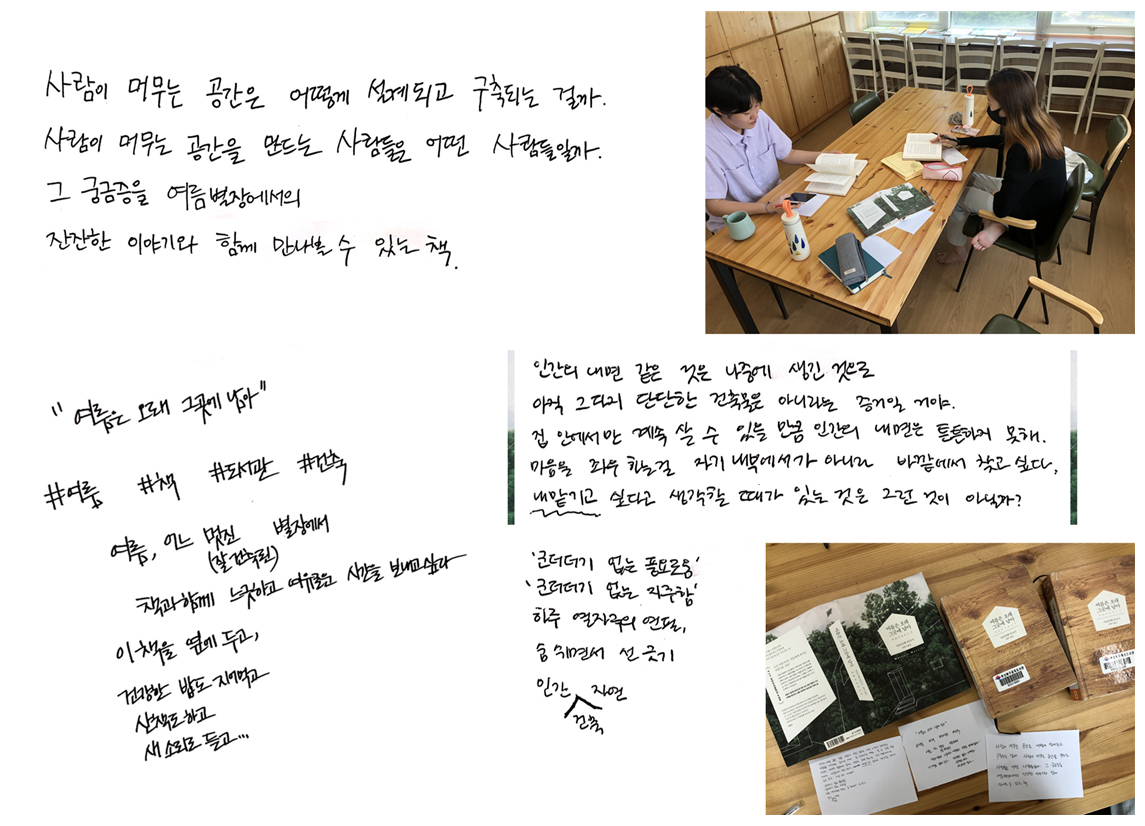 사람이 머무는 공간은 어떻게 설계되고 구축되는 걸까.
사람이 머무는 공간을 만드는 사람들은 어떤 사람들일까.
그 궁금증을 여름별장에서의
잔잔한 이야기와 함께 만나볼 수 있는 책.
"여름은 오래 그곳에 남아"
#여름 #책 #도서관 #건축
여름, 어느 멋진 별장에서
(잘 건축된)
책과 함께 느긋하고 여유롭고 시간을 보내고싶다
이 책을 옆에 두고,
건강한 밥도 지어먹고
산책도 하고
새 소리도 듣고...
인간의 내면 같은 것은 나중에 생긴 것으로
아직 그다지 단단한 건축물은 아니라는 증거일 거야.
집 안에서만 계속 살 수 있을 만큼 인간의 내면은 튼튼하지 못해.
마음을 좌우 하는걸 자기 내부에서가 아니라 바깥에서 찾고 싶다,
내맡기고 싶다고 생각할 때가 있는 것은 그런 것이 아닐까?
'군더더기 없는 풍요로움'
'군더더기 없는 지주함'
하주 열자국의 연필,
숨 쉬면서 선 긋기
인간 자연
건축
여름은 오래
그곳에 남아
여름은 오래
그곳에 남아
여름은 오래
그곳에 남아